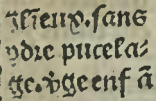 ilieux. sans
ydre pucela⸗
ge. vgeens ā